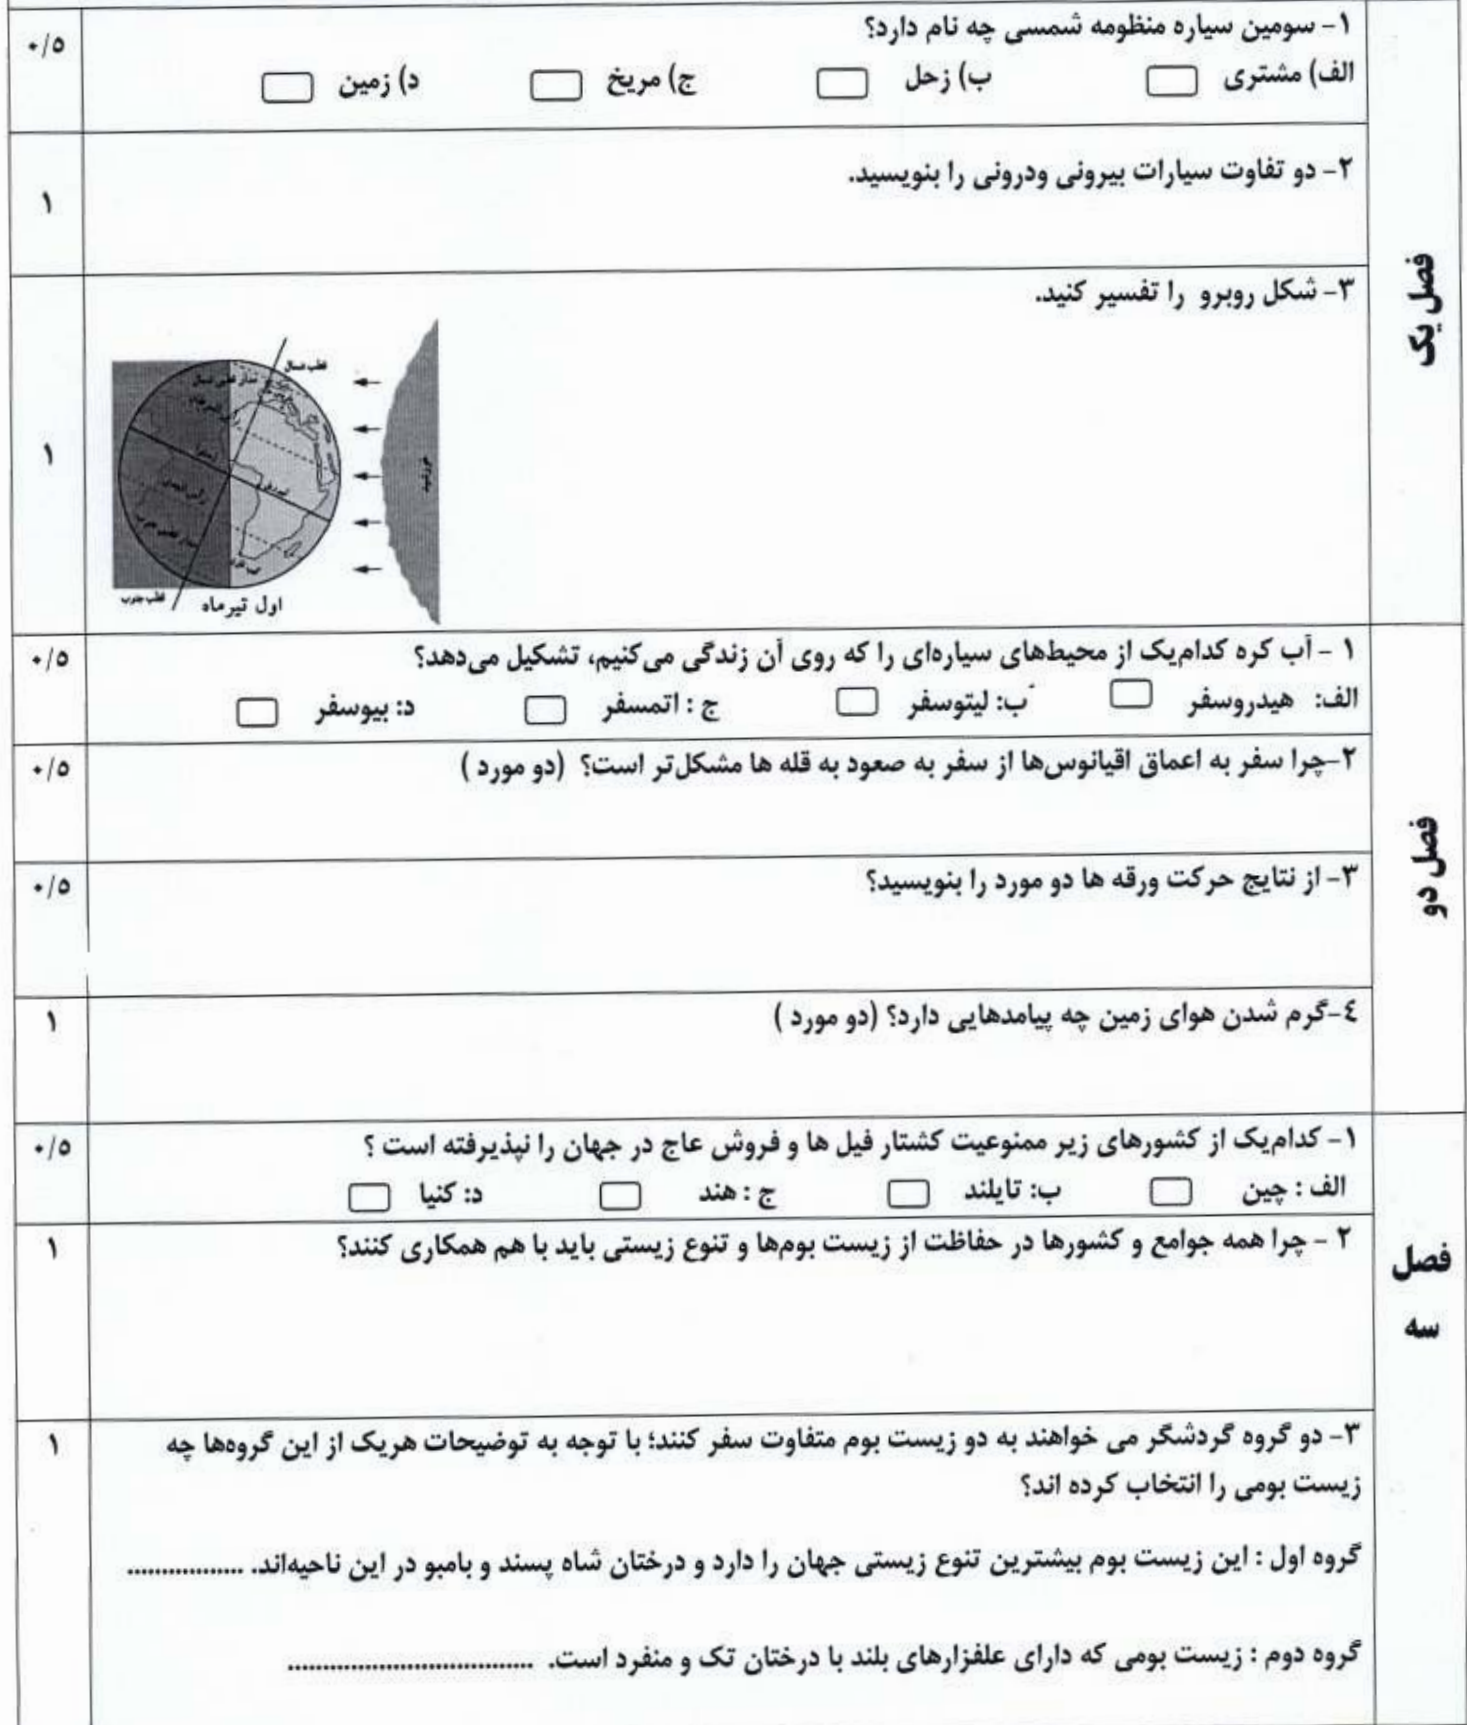 فصل یک
۱- سومین سیاره منظومه شمسی چه نام دارد؟
۰/۵
الف) مشتری ب) زحل ج) مریخ د) زمین
۲- دو تفاوت سیارات بیرونی ودرونی را بنویسید.
۱
۳- شکل روبرو را تفسیر کنید.
۱
قطب شمال
مدار قطبی شمال
رأس السرطان
استوا
رأس الجدی
مدار قطبی جنوب
قطب جنوب
خورشید
اول تیرماه
فصل دو
۱ - آب کره کدام‌یک از محیط‌های سیاره‌ای را که روی آن زندگی می‌کنیم، تشکیل می‌دهد؟
۰/۵
الف: هیدروسفر ب: لیتوسفر ج : اتمسفر د: بیوسفر
۲-چرا سفر به اعماق اقیانوس‌ها از سفر به صعود به قله ها مشکل‌تر است؟ (دو مورد )
۰/۵
۳- از نتایج حرکت ورقه ها دو مورد را بنویسید؟
۰/۵
٤-گرم شدن هوای زمین چه پیامدهایی دارد؟ (دو مورد )
۱
فصل
سه
۱- کدام‌یک از کشورهای زیر ممنوعیت کشتار فیل ها و فروش عاج در جهان را نپذیرفته است ؟
۰/۵
الف : چین ب: تایلند ج : هند د: کنیا
۲ - چرا همه جوامع و کشورها در حفاظت از زیست بوم‌ها و تنوع زیستی باید با هم همکاری کنند؟
۱
۳- دو گروه گردشگر می خواهند به دو زیست بوم متفاوت سفر کنند؛ با توجه به توضیحات هریک از این گروه‌ها چه
۱
زیست بومی را انتخاب کرده اند؟
گروه اول : این زیست بوم بیشترین تنوع زیستی جهان را دارد و درختان شاه پسند و بامبو در این ناحیه‌اند. .................
گروه دوم : زیست بومی که دارای علفزارهای بلند با درختان تک و منفرد است. ...................................